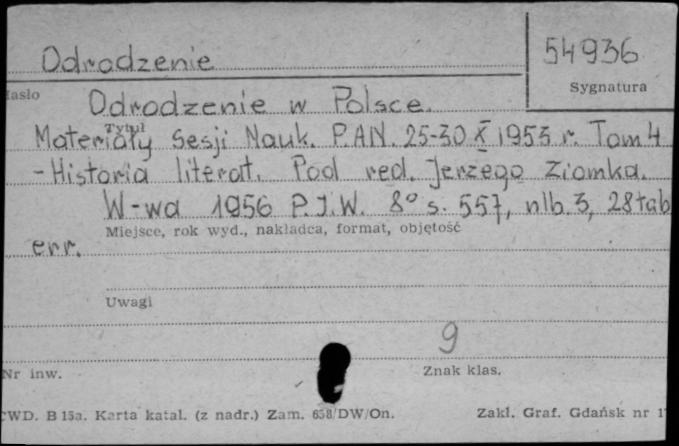 Odrodzenie
54936
Sygnatura
Hasło
Odrodzenie w Polsce.
Tytuł
Materiały Sesji Nauk. P.A.N. 25-30 X 1953 r. Tom 4
- Historia literat. Pod red. Jerzego Ziomka.
W-wa 1956 P.I.W. 8° s. 557, nlb. 3, 28 tab
Miejsce, rok wyd., nakładca, format, objętość
err.
Uwagi
9
Nr inw.
Znak klas.
CWD. B 15a. Karta katal. (z nadr.) Zam. 658/DW/On.
Zakł. Graf. Gdańsk nr 1